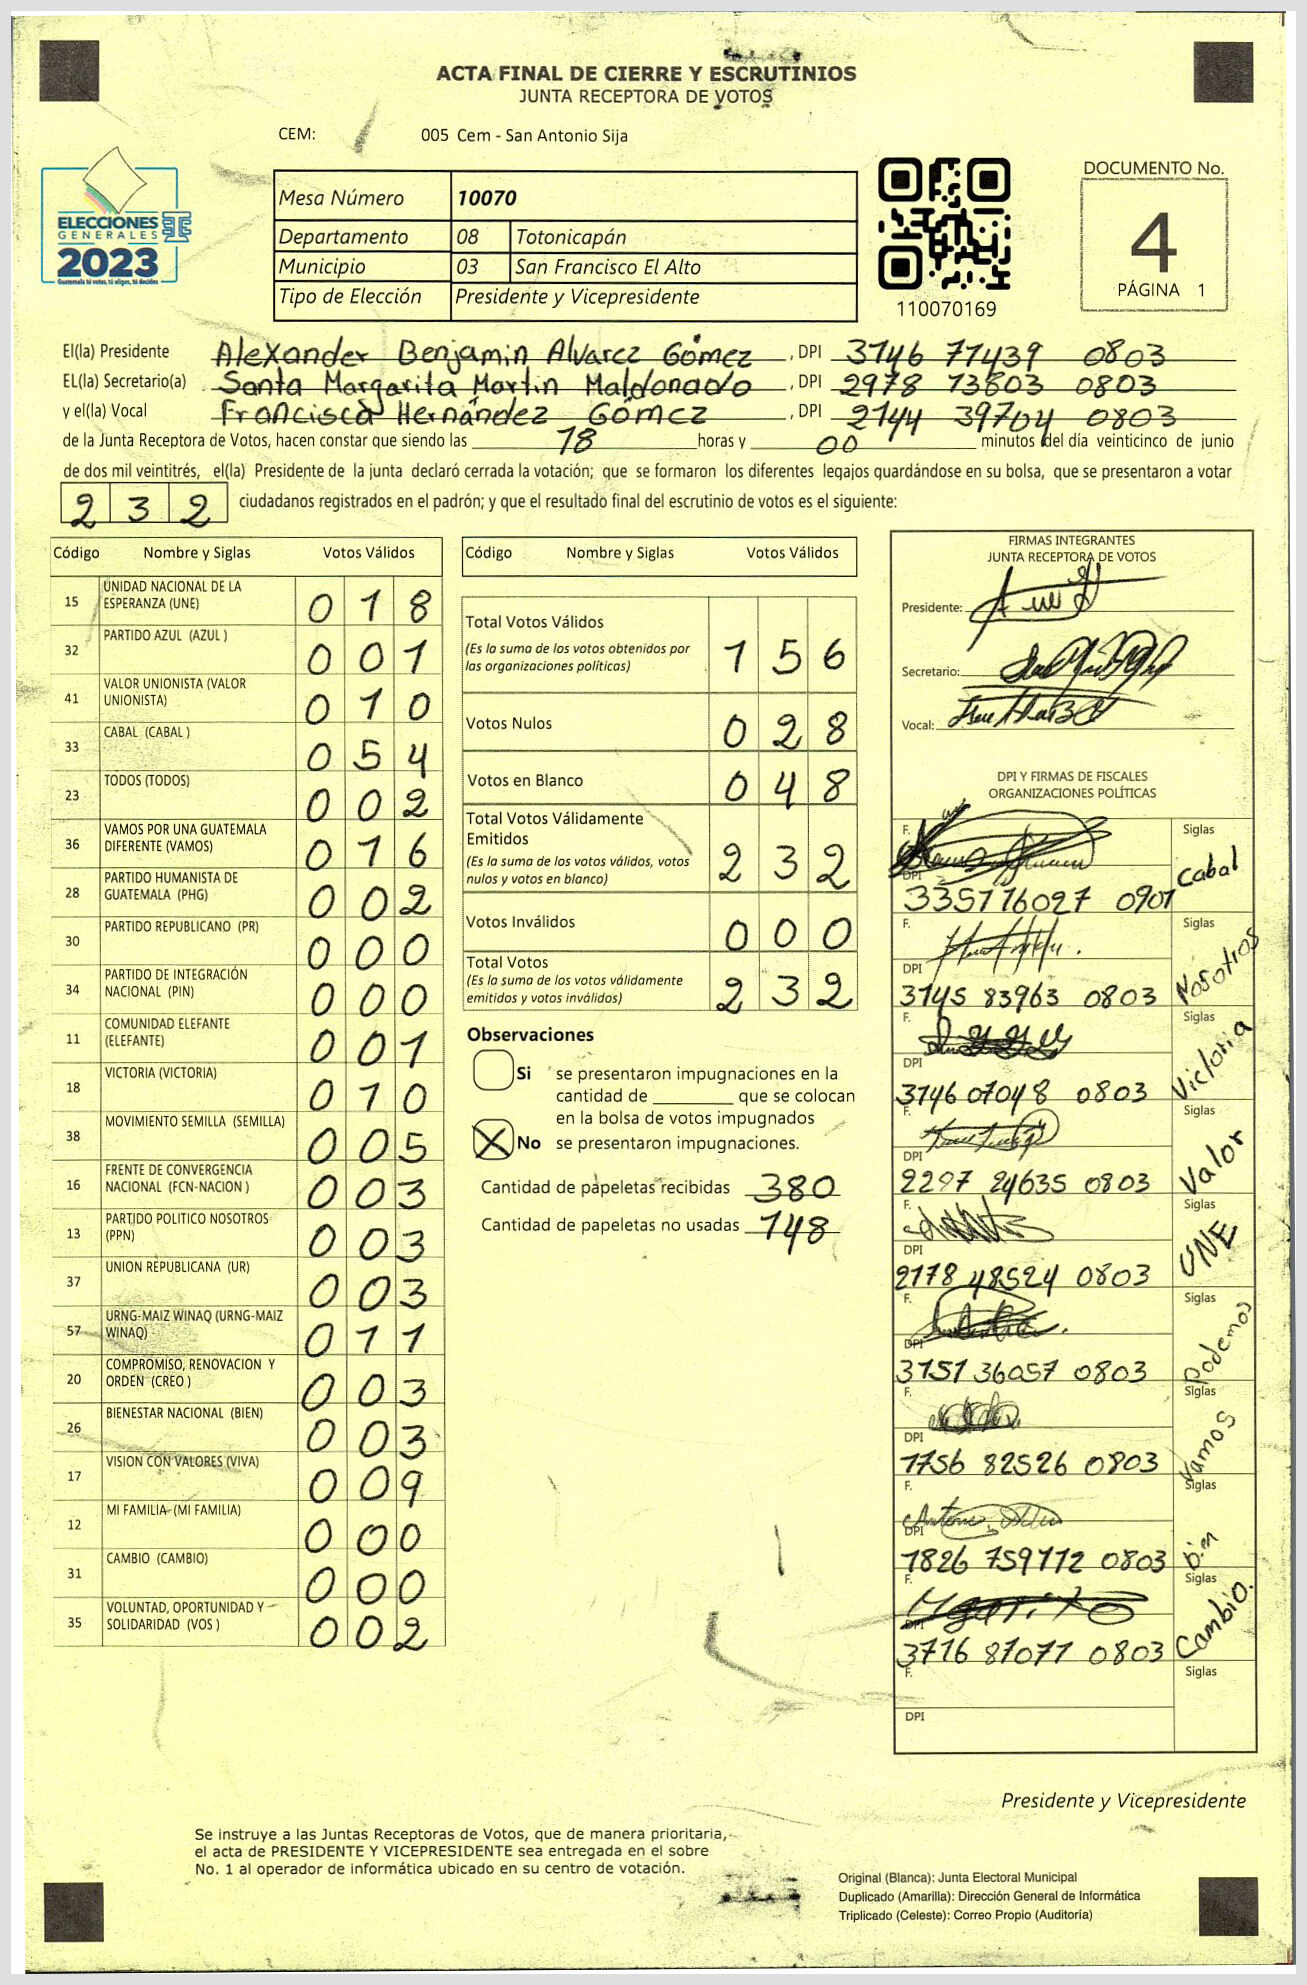 ACTA FINAL DE CIERRE Y ESCRUTINIOS
JUNTA RECEPTORA DE VOTOS
CEM: 005 Cem - San Antonio Sija
ELECCIONES
GENERALES
2023
Guatemala tú votas, tú eliges, tú decides
Mesa Número 10070
Departamento 08 Totonicapán
Municipio 03 San Francisco El Alto
Tipo de Elección Presidente y Vicepresidente
110070169
DOCUMENTO No.
4
PÁGINA 1
El(la) Presidente Alexander Benjamin Alvarez Gómez , DPI 3146 71439 0803
EL(la) Secretario(a) Santa Margarita Martin Maldonado , DPI 2978 13803 0803
y el(la) Vocal Francisca Hernández Gómez , DPI 2144 39704 0803
de la Junta Receptora de Votos, hacen constar que siendo las 18 horas y 00 minutos del día veinticinco de junio
de dos mil veintitrés, el(la) Presidente de la junta declaró cerrada la votación; que se formaron los diferentes legajos guardándose en su bolsa, que se presentaron a votar
232 ciudadanos registrados en el padrón; y que el resultado final del escrutinio de votos es el siguiente:
Código Nombre y Siglas Votos Válidos
15 UNIDAD NACIONAL DE LA ESPERANZA (UNE) 018
32 PARTIDO AZUL (AZUL ) 001
41 VALOR UNIONISTA (VALOR UNIONISTA) 010
33 CABAL (CABAL ) 054
23 TODOS (TODOS) 002
36 VAMOS POR UNA GUATEMALA DIFERENTE (VAMOS) 016
28 PARTIDO HUMANISTA DE GUATEMALA (PHG) 002
30 PARTIDO REPUBLICANO (PR) 000
34 PARTIDO DE INTEGRACIÓN NACIONAL (PIN) 000
11 COMUNIDAD ELEFANTE (ELEFANTE) 001
18 VICTORIA (VICTORIA) 010
38 MOVIMIENTO SEMILLA (SEMILLA) 005
16 FRENTE DE CONVERGENCIA NACIONAL (FCN-NACION ) 003
13 PARTIDO POLITICO NOSOTROS (PPN) 003
37 UNION REPUBLICANA (UR) 003
57 URNG-MAIZ WINAQ (URNG-MAIZ WINAQ) 011
20 COMPROMISO, RENOVACION Y ORDEN (CREO ) 003
26 BIENESTAR NACIONAL (BIEN) 003
17 VISION CON VALORES (VIVA) 009
12 MI FAMILIA (MI FAMILIA) 000
31 CAMBIO (CAMBIO) 000
35 VOLUNTAD, OPORTUNIDAD Y SOLIDARIDAD (VOS ) 002
Código Nombre y Siglas Votos Válidos
Total Votos Válidos
(Es la suma de los votos obtenidos por
las organizaciones políticas) 156
Votos Nulos 028
Votos en Blanco 048
Total Votos Válidamente
Emitidos
(Es la suma de los votos válidos, votos
nulos y votos en blanco) 232
Votos Inválidos 000
Total Votos
(Es la suma de los votos válidamente
emitidos y votos inválidos) 232
Observaciones
Si se presentaron impugnaciones en la
cantidad de que se colocan
en la bolsa de votos impugnados
X No se presentaron impugnaciones.
Cantidad de papeletas recibidas 380
Cantidad de papeletas no usadas 148
FIRMAS INTEGRANTES
JUNTA RECEPTORA DE VOTOS
Presidente:
Secretario:
Vocal:
DPI Y FIRMAS DE FISCALES
ORGANIZACIONES POLÍTICAS
F. Siglas Cabal
DPI 3351 16027 0901
F. Siglas Nosotros
DPI 3145 83963 0803
F. Siglas Victoria
DPI 3146 07048 0803
F. Siglas Valor
DPI 2297 24635 0803
F. Siglas UNE
DPI 2178 48524 0803
F. Siglas Podemos
DPI 3151 36057 0803
F. Siglas Vamos
DPI 1756 82526 0803
F. Siglas bien
DPI 1826 759112 0803
F. Siglas Cambio.
DPI 3716 87077 0803
F. Siglas
DPI
Presidente y Vicepresidente
Se instruye a las Juntas Receptoras de Votos, que de manera prioritaria,
el acta de PRESIDENTE Y VICEPRESIDENTE sea entregada en el sobre
No. 1 al operador de informática ubicado en su centro de votación.
Original (Blanca): Junta Electoral Municipal
Duplicado (Amarilla): Dirección General de Informática
Triplicado (Celeste): Correo Propio (Auditoría)